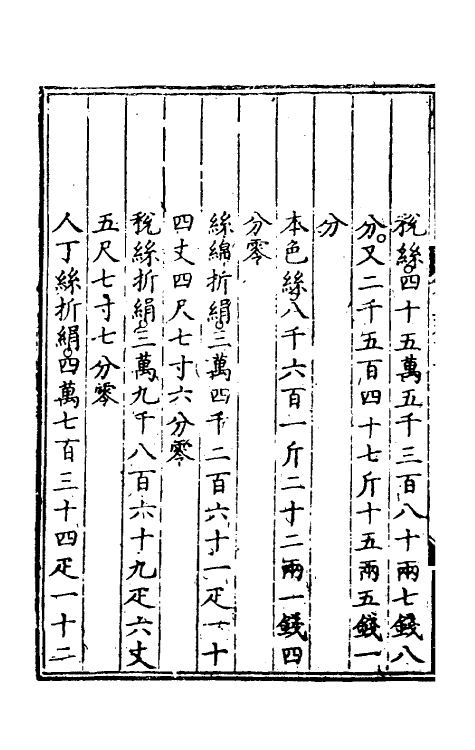 稅絲四十五萬五千三百八十兩七錢八
分又二千五百四十七斤十五兩五錢一
分
本色絲八千六百一斤二十二兩一錢四
分零
絲綿折絹三萬四千二百六十一疋一十
四丈四尺七寸六分零
稅絲折絹三萬九千八百六十九疋六丈
五尺七寸七分零
人丁絲折絹四萬七百三十四疋一十二